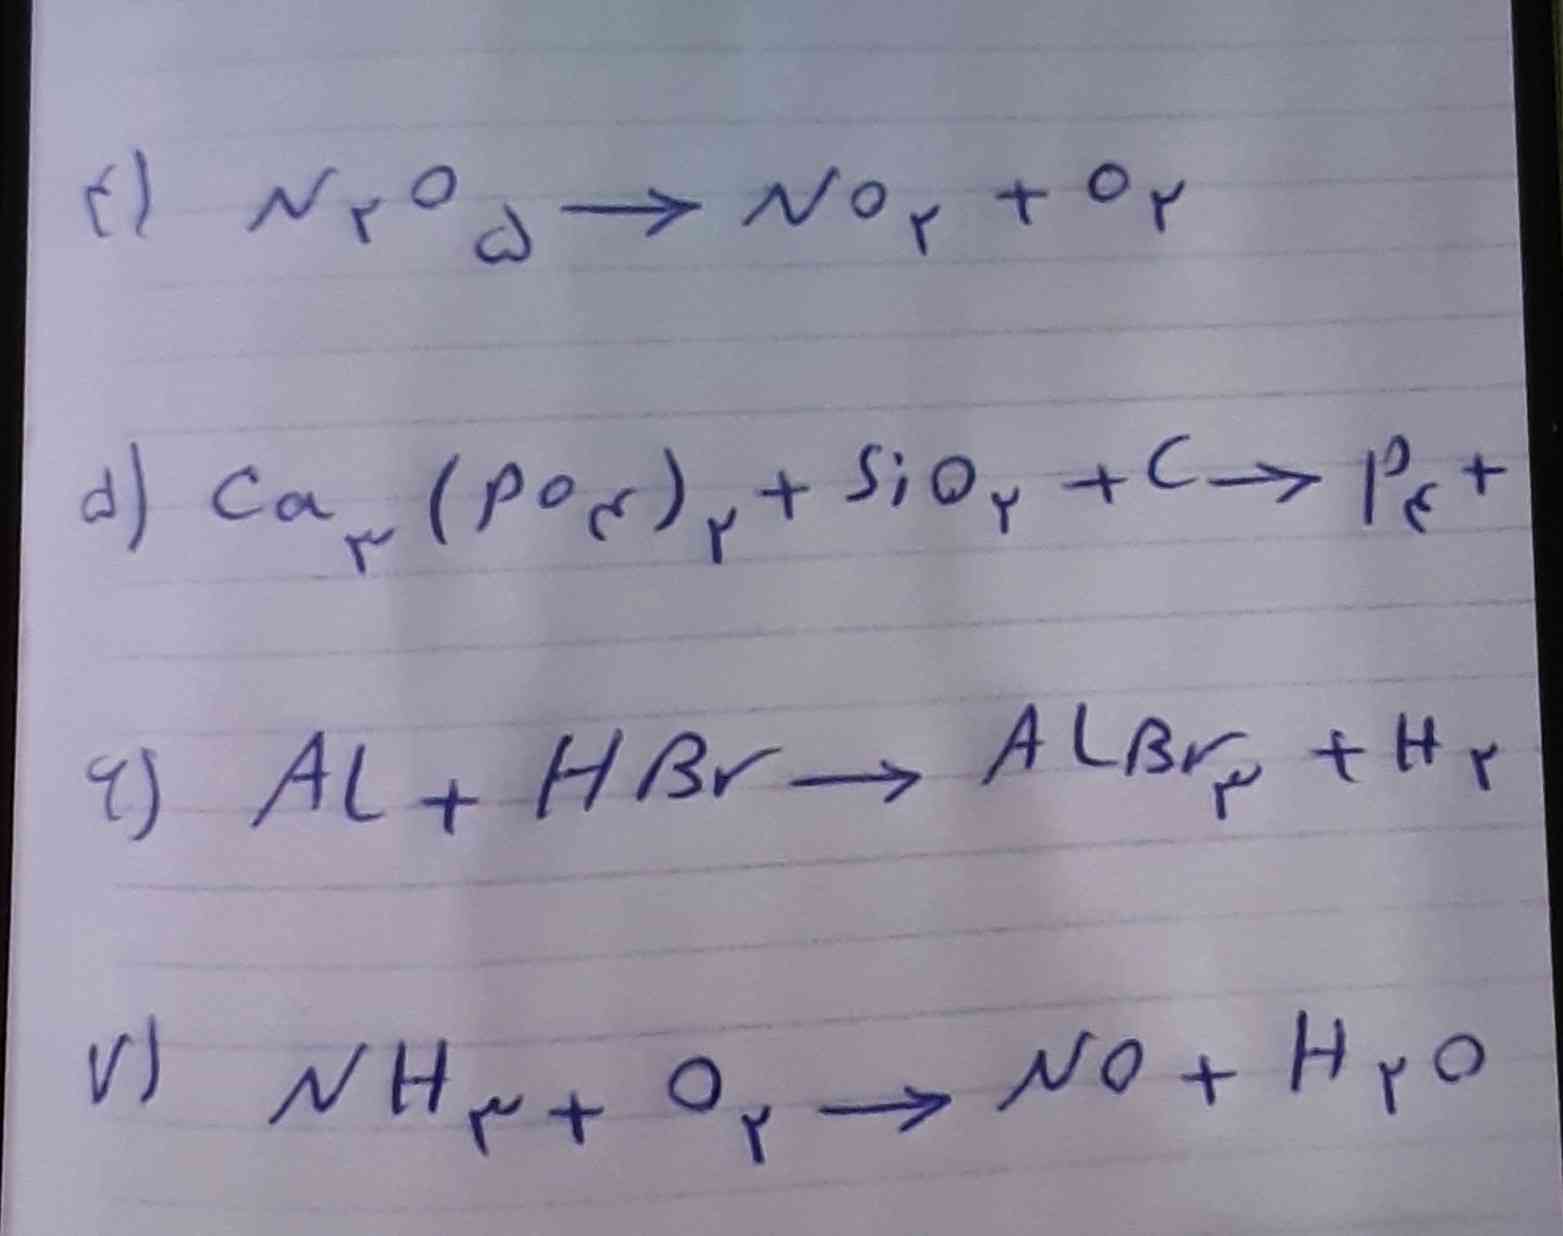 ۴) N۲O۵ → NO۲ + O۲
۵) Ca۳(PO۴)۲ + SiO۲ + C → P۴ +
۶) Al + HBr → AlBr۳ + H۲
۷) NH۳ + O۲ → NO + H۲O